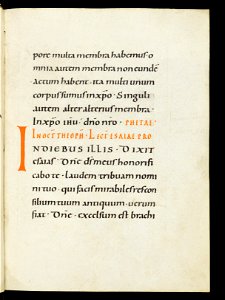 pore multa membra habemus · o
mnia autem membra non eundē
actum habent · ita multi unum
corpus sumus in xp̄o · Singuli
autem alter alterius membra ·
In xp̄o ihu · dn̄o nr̄o ·
IN DIEBUS ILLIS · DIXIT
esaias · Dn̄e ds̄ meus honorifi
cabo te · laudem tribuam nomi
ni tuo · qui facis mirabiles res con
silium tuum antiquum · uerum
fiat · Dn̄e · excelsum est brachi